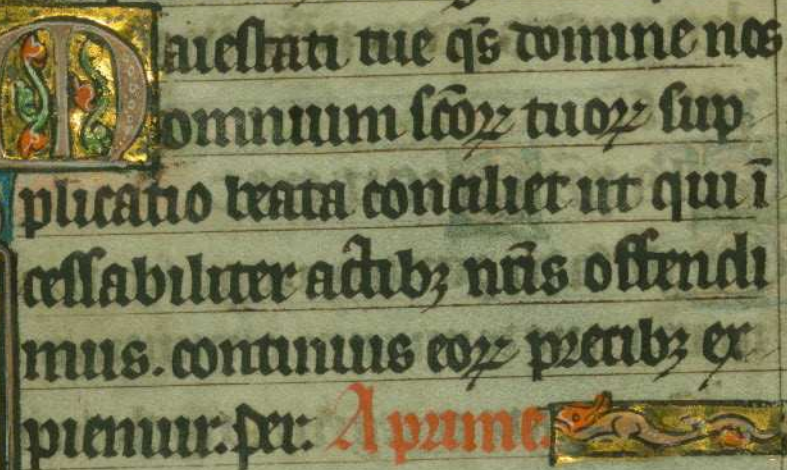 Maiestati tue q̄s domine nos
omnium sc̄oꝝ tuoꝝ sup
plicatio beata conciliet ut qui ī
cessabiliter actibꝫ nr̄is offendi
mus. continuis eoꝝ precibꝫ ex
piemur. Per. A prime.